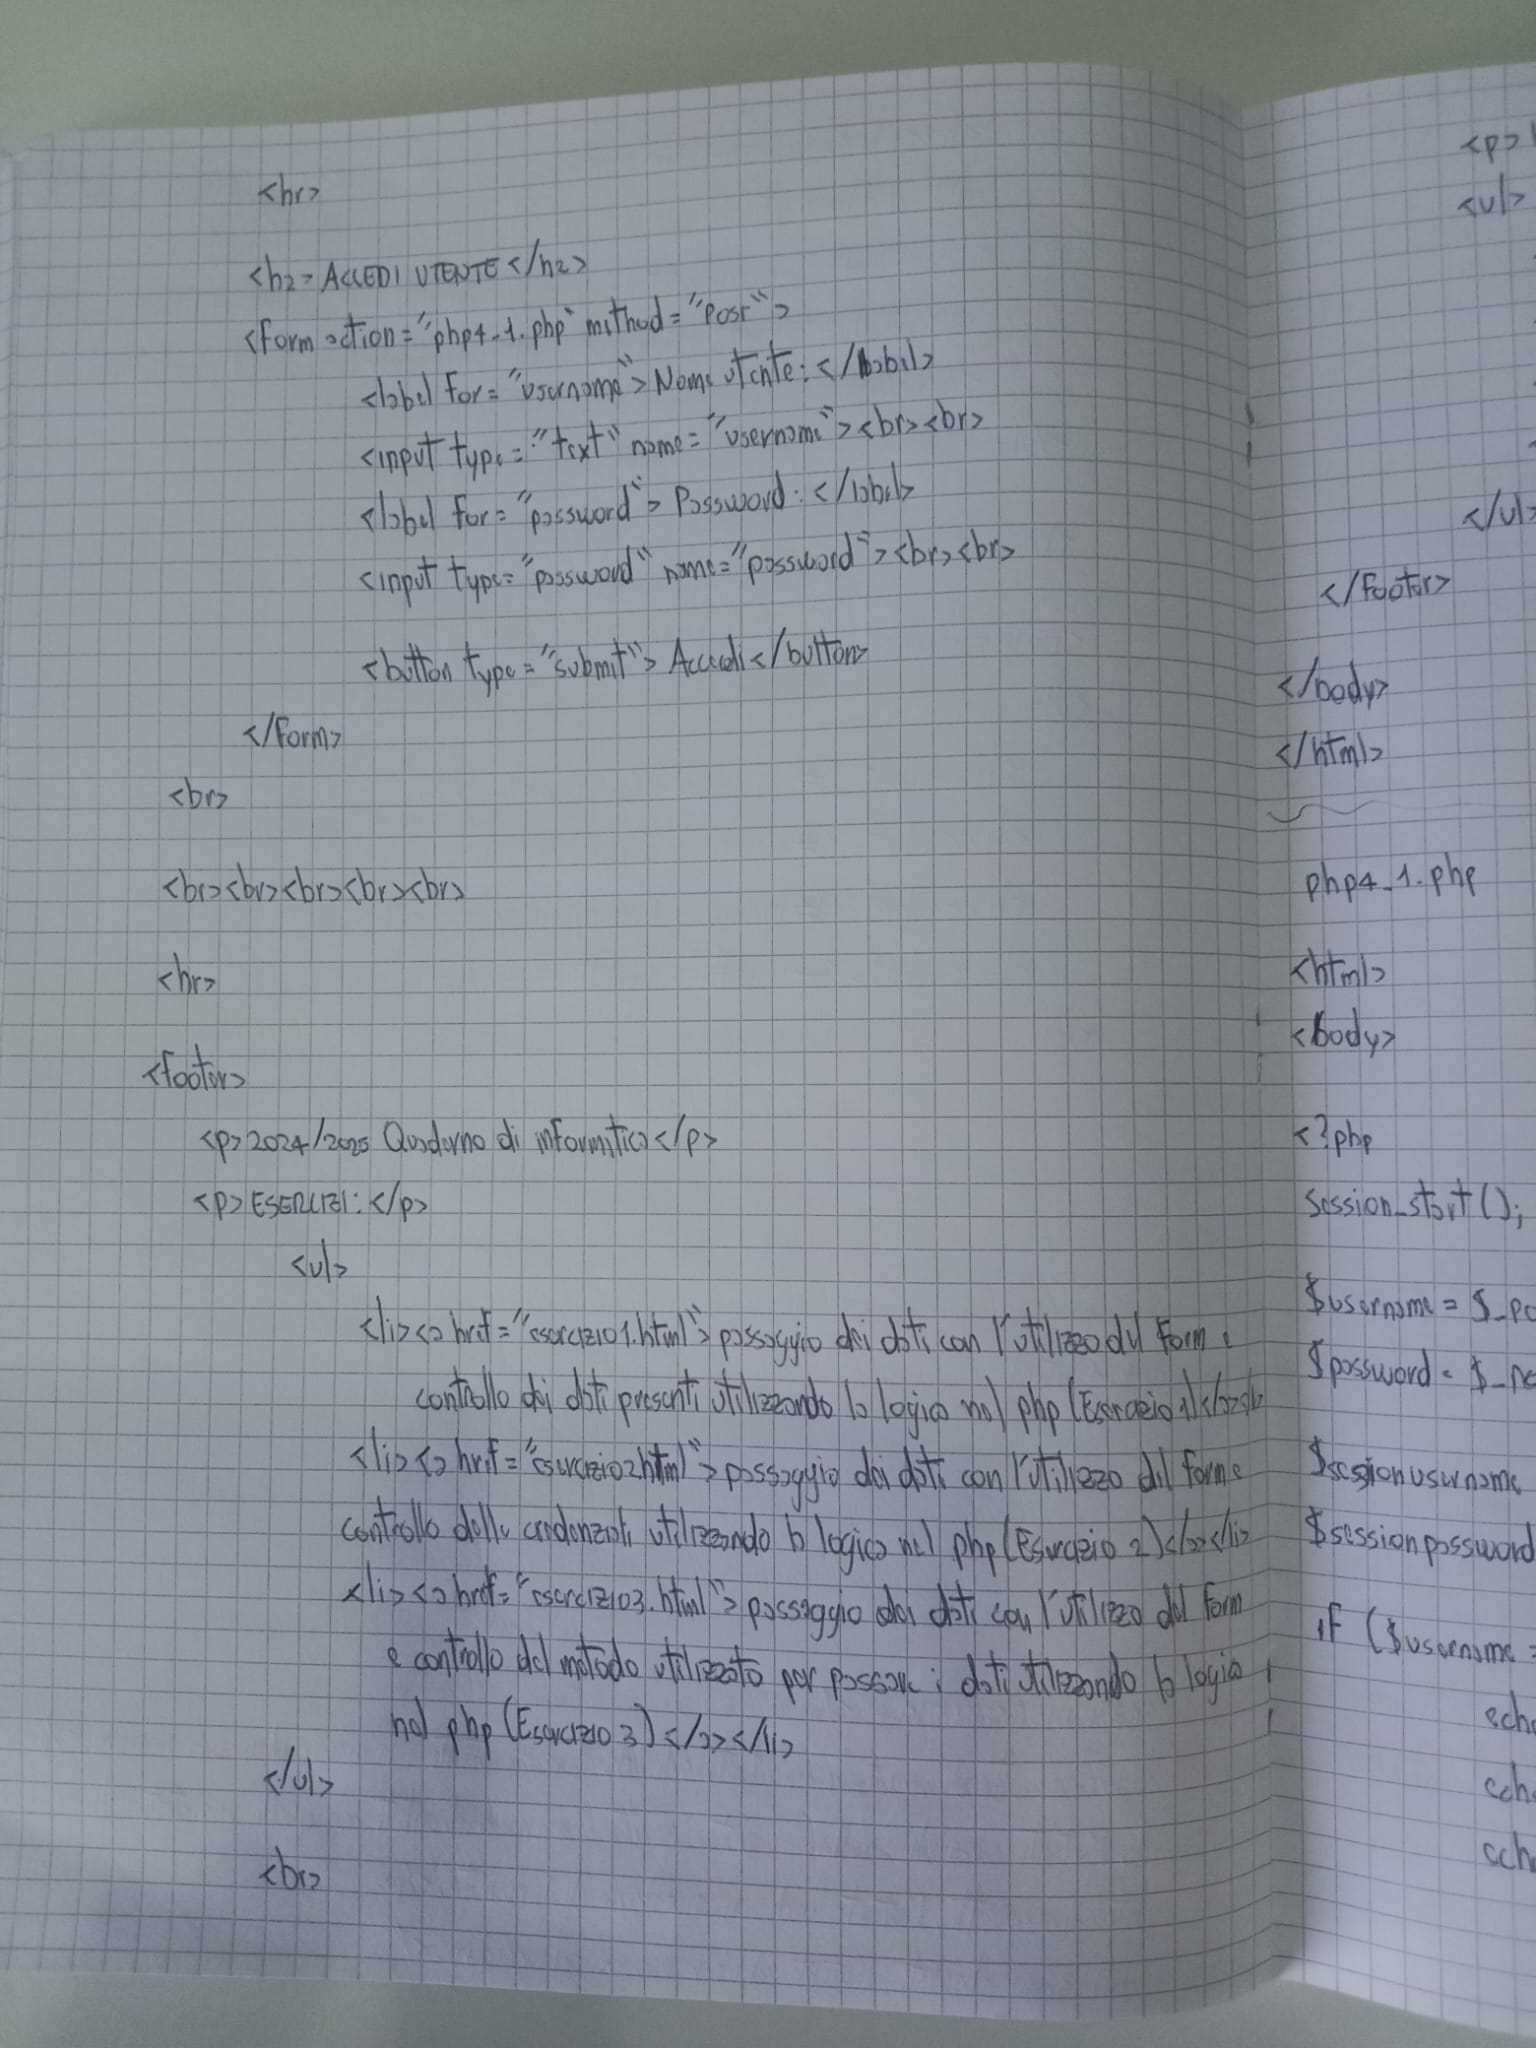 <hr>
<h2> ACCEDI UTENTE </h2>
<form action="php4_1.php" method="Post">
<label for="username"> Nome utente: </label>
<input type="text" name="username"><br><br>
<label for="password"> Password: </label>
<input type="password" name="password"><br><br>
<button type="submit"> Accedi </button>
</form>
<br>
<br><br><br><br><br>
<hr>
<footer>
<p>2024/2025 Quaderno di informatica</p>
<p>ESERCIZI:</p>
<ul>
<li><a href="esercizio1.html"> passaggio dei dati con l'utilizzo del form e
controllo dei dati presenti utilizzando la logica nel php (Esercizio 1)</a>
<li><a href="esercizio2.html"> passaggio dei dati con l'utilizzo del form e
controllo delle credenziali utilizzando la logica nel php (Esercizio 2)</a></li>
<li><a href="esercizio3.html"> passaggio dei dati con l'utilizzo del form
e controllo del metodo utilizzato per passare i dati utilizzando la logica
nel php (Esercizio 3)</a></li>
</ul>
<br>
<p>
<ul>
</ul>
</footer>
</body>
</html>
php4_1.php
<html>
<body>
<?php
session_start();
$username = $_Po
$password = $_Po
$sessionusername
$sessionpassword
if ($username =
echo
echo
echo